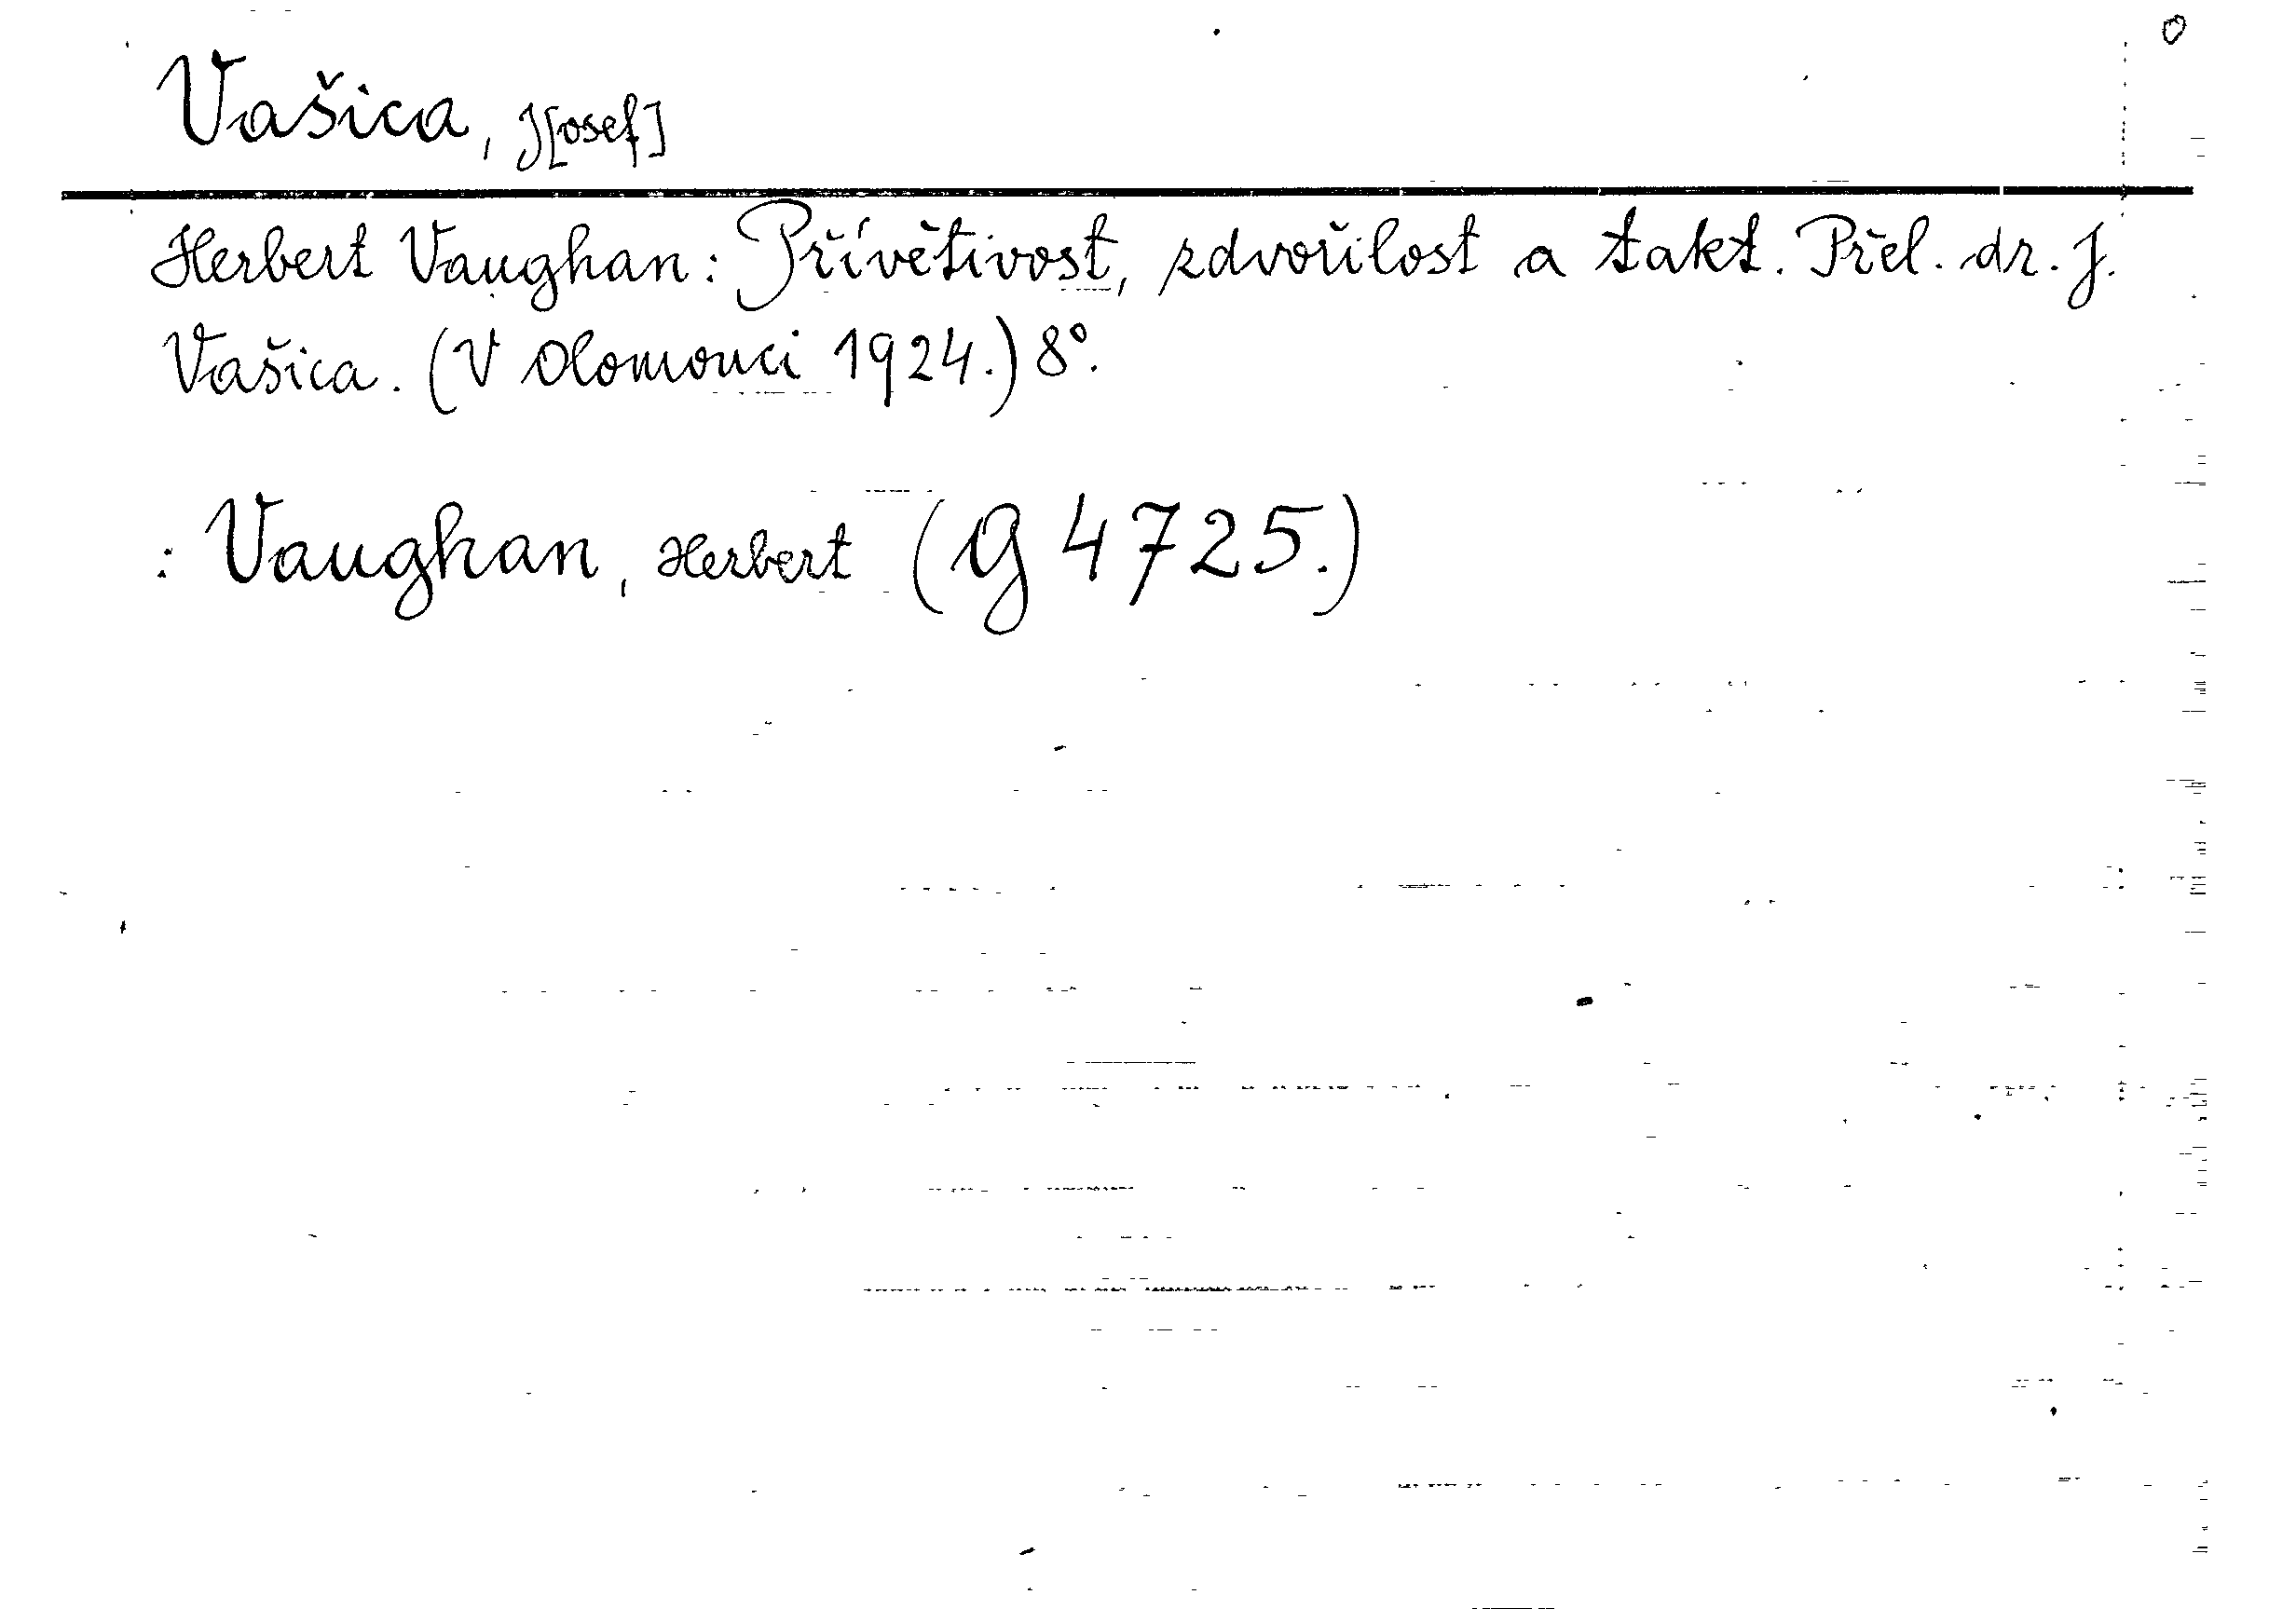 Vašica, J[osef]
Herbert Vaughan: Přívětivost, zdvořilost a takt. Přel. dr. J.
Vašica. (V Olomouci 1924.) 8°.
: Vaughan, Herbert (G 4725.)